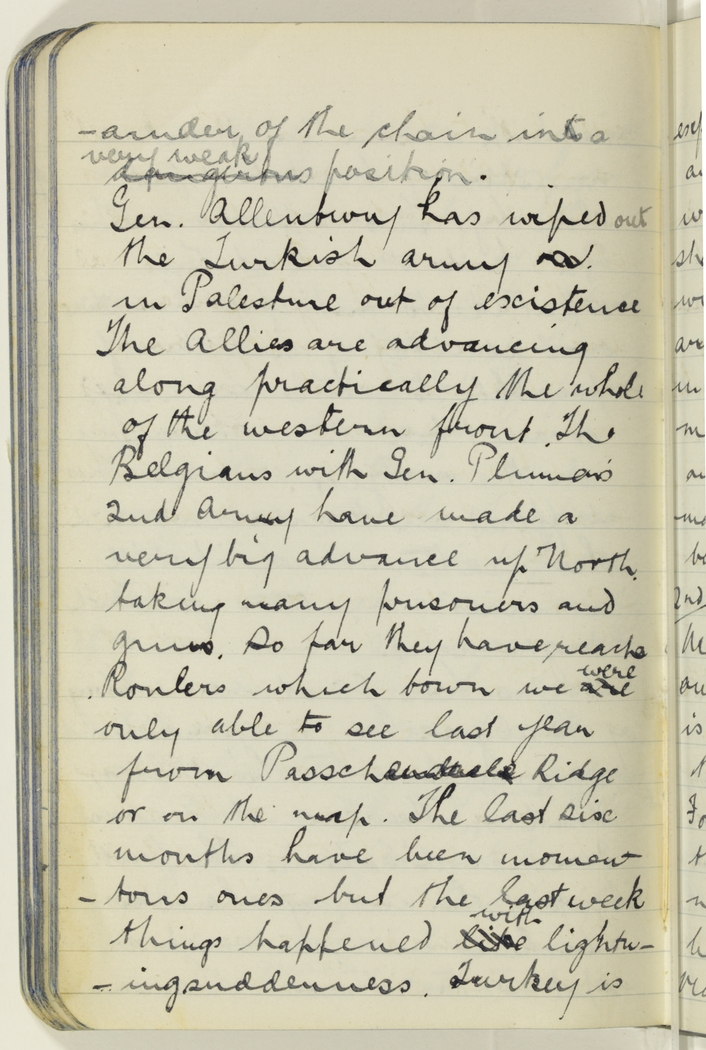 -ainder of the chain into a
very weak
dangerous position.
Gen. Allenbury has wiped out
the Turkish army
in Palestine out of excistence
The Allies are advancing
along practically the whole
of the western front. The
Belgians with Gen. Plumer's
2nd Army have made a
very big advance up North.
taking many prisoners and
guns. So far they have reache
Roulers which town we were
only able to see last year
from Passchendaele Ridge
or on the map. The last six
months have been momen-
-tous ones but the last week
with
things happened like lightn-
-ing suddenness. Turkey is